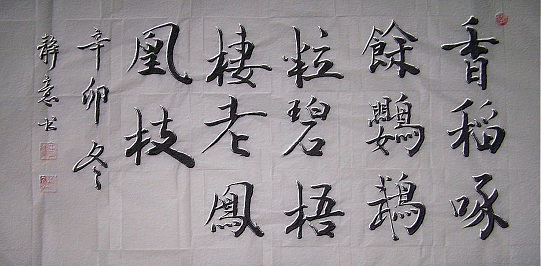 香稻啄
餘鸚鵡
粒碧梧
棲老鳳
凰枝
辛卯冬
靜意书